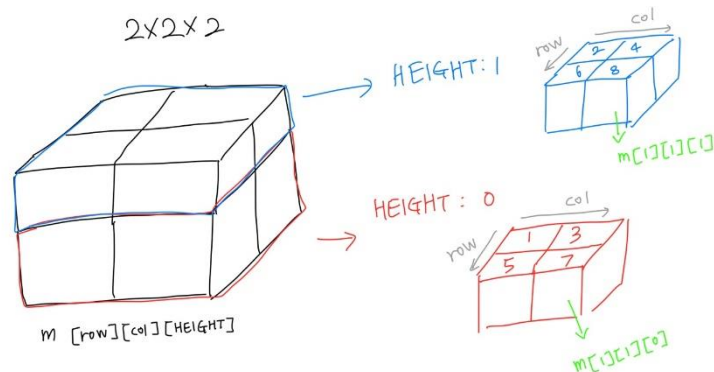 2X2X2
HEIGHT: 1
row
col
2 4
6 8
m[1][1][1]
HEIGHT : 0
row
col
1 3
5 7
m[1][1][0]
m [row][col][HEIGHT]